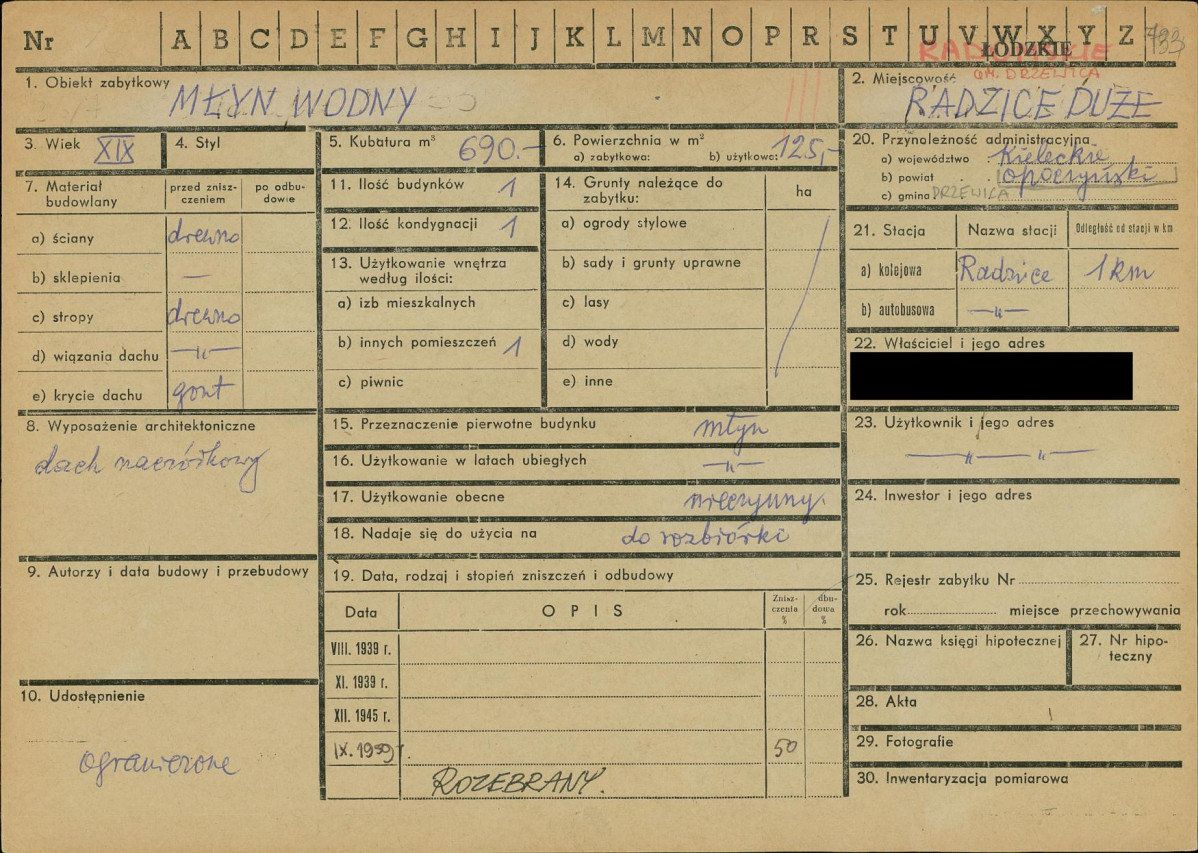 Nr A B C D E F G H I J K L M N O P R S T U V W X Y Z
ŁÓDZKIE
GM. DRZEWICA
1. Obiekt zabytkowy
MŁYN WODNY
2. Miejscowość
RADZICE DUŻE
3. Wiek XIX
4. Styl
5. Kubatura m³ 690.-
6. Powierzchnia w m²
a) zabytkowa: b) użytkowa: 125,-
20. Przynależność administracyjna
a) województwo Kieleckie
b) powiat opoczyński
c) gmina DRZEWICA
7. Materiał budowlany
przed znisz-
czeniem
po odbu-
dowie
a) ściany drewno
b) sklepienia —
c) stropy drewno
d) wiązania dachu —„—
e) krycie dachu gont
8. Wyposażenie architektoniczne
dach naczółkowy
9. Autorzy i data budowy i przebudowy
10. Udostępnienie
ograniczone
11. Ilość budynków 1
12. Ilość kondygnacji 1
13. Użytkowanie wnętrza
według ilości:
a) izb mieszkalnych
b) innych pomieszczeń 1
c) piwnic
14. Grunty należące do
zabytku:
ha
a) ogrody stylowe
b) sady i grunty uprawne
c) lasy
d) wody
e) inne
15. Przeznaczenie pierwotne budynku młyn
16. Użytkowanie w latach ubiegłych —„—
17. Użytkowanie obecne nieczynny.
18. Nadaje się do użycia na do rozbiórki
19. Data, rodzaj i stopień zniszczeń i odbudowy
Data
OPIS
Znisz-
czenia
%
dbu-
dowa
%
VIII. 1939 r.
XI. 1939 r.
XII. 1945 r.
IX. 1959 r. 50
ROZEBRANY.
21. Stacja
Nazwa stacji
Odległość od stacji w km
a) kolejowa Radzice 1 km
b) autobusowa —„—
22. Właściciel i jego adres
23. Użytkownik i jego adres
—„— „—
24. Inwestor i jego adres
25. Rejestr zabytku Nr
rok miejsce przechowywania
26. Nazwa księgi hipotecznej
27. Nr hipo-
teczny
28. Akta
29. Fotografie
30. Inwentaryzacja pomiarowa